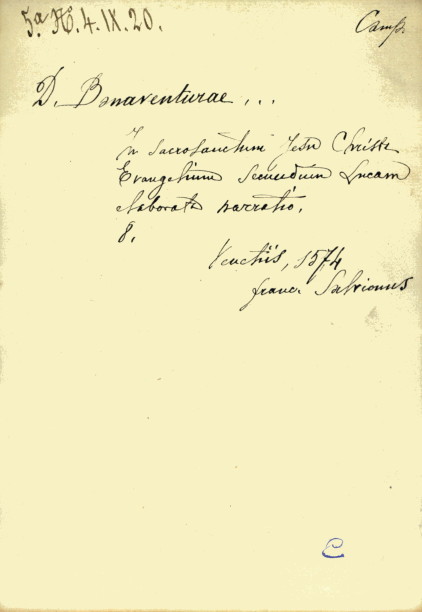 5.a H. 4. IX. 20.
Camp.
D. Bonaventurae ...
In Sacrosanctum Jesu Christi
Evangelium Secundum Lucam
elaborata narratio.
8.
Venetiis, 1574
franc.
C